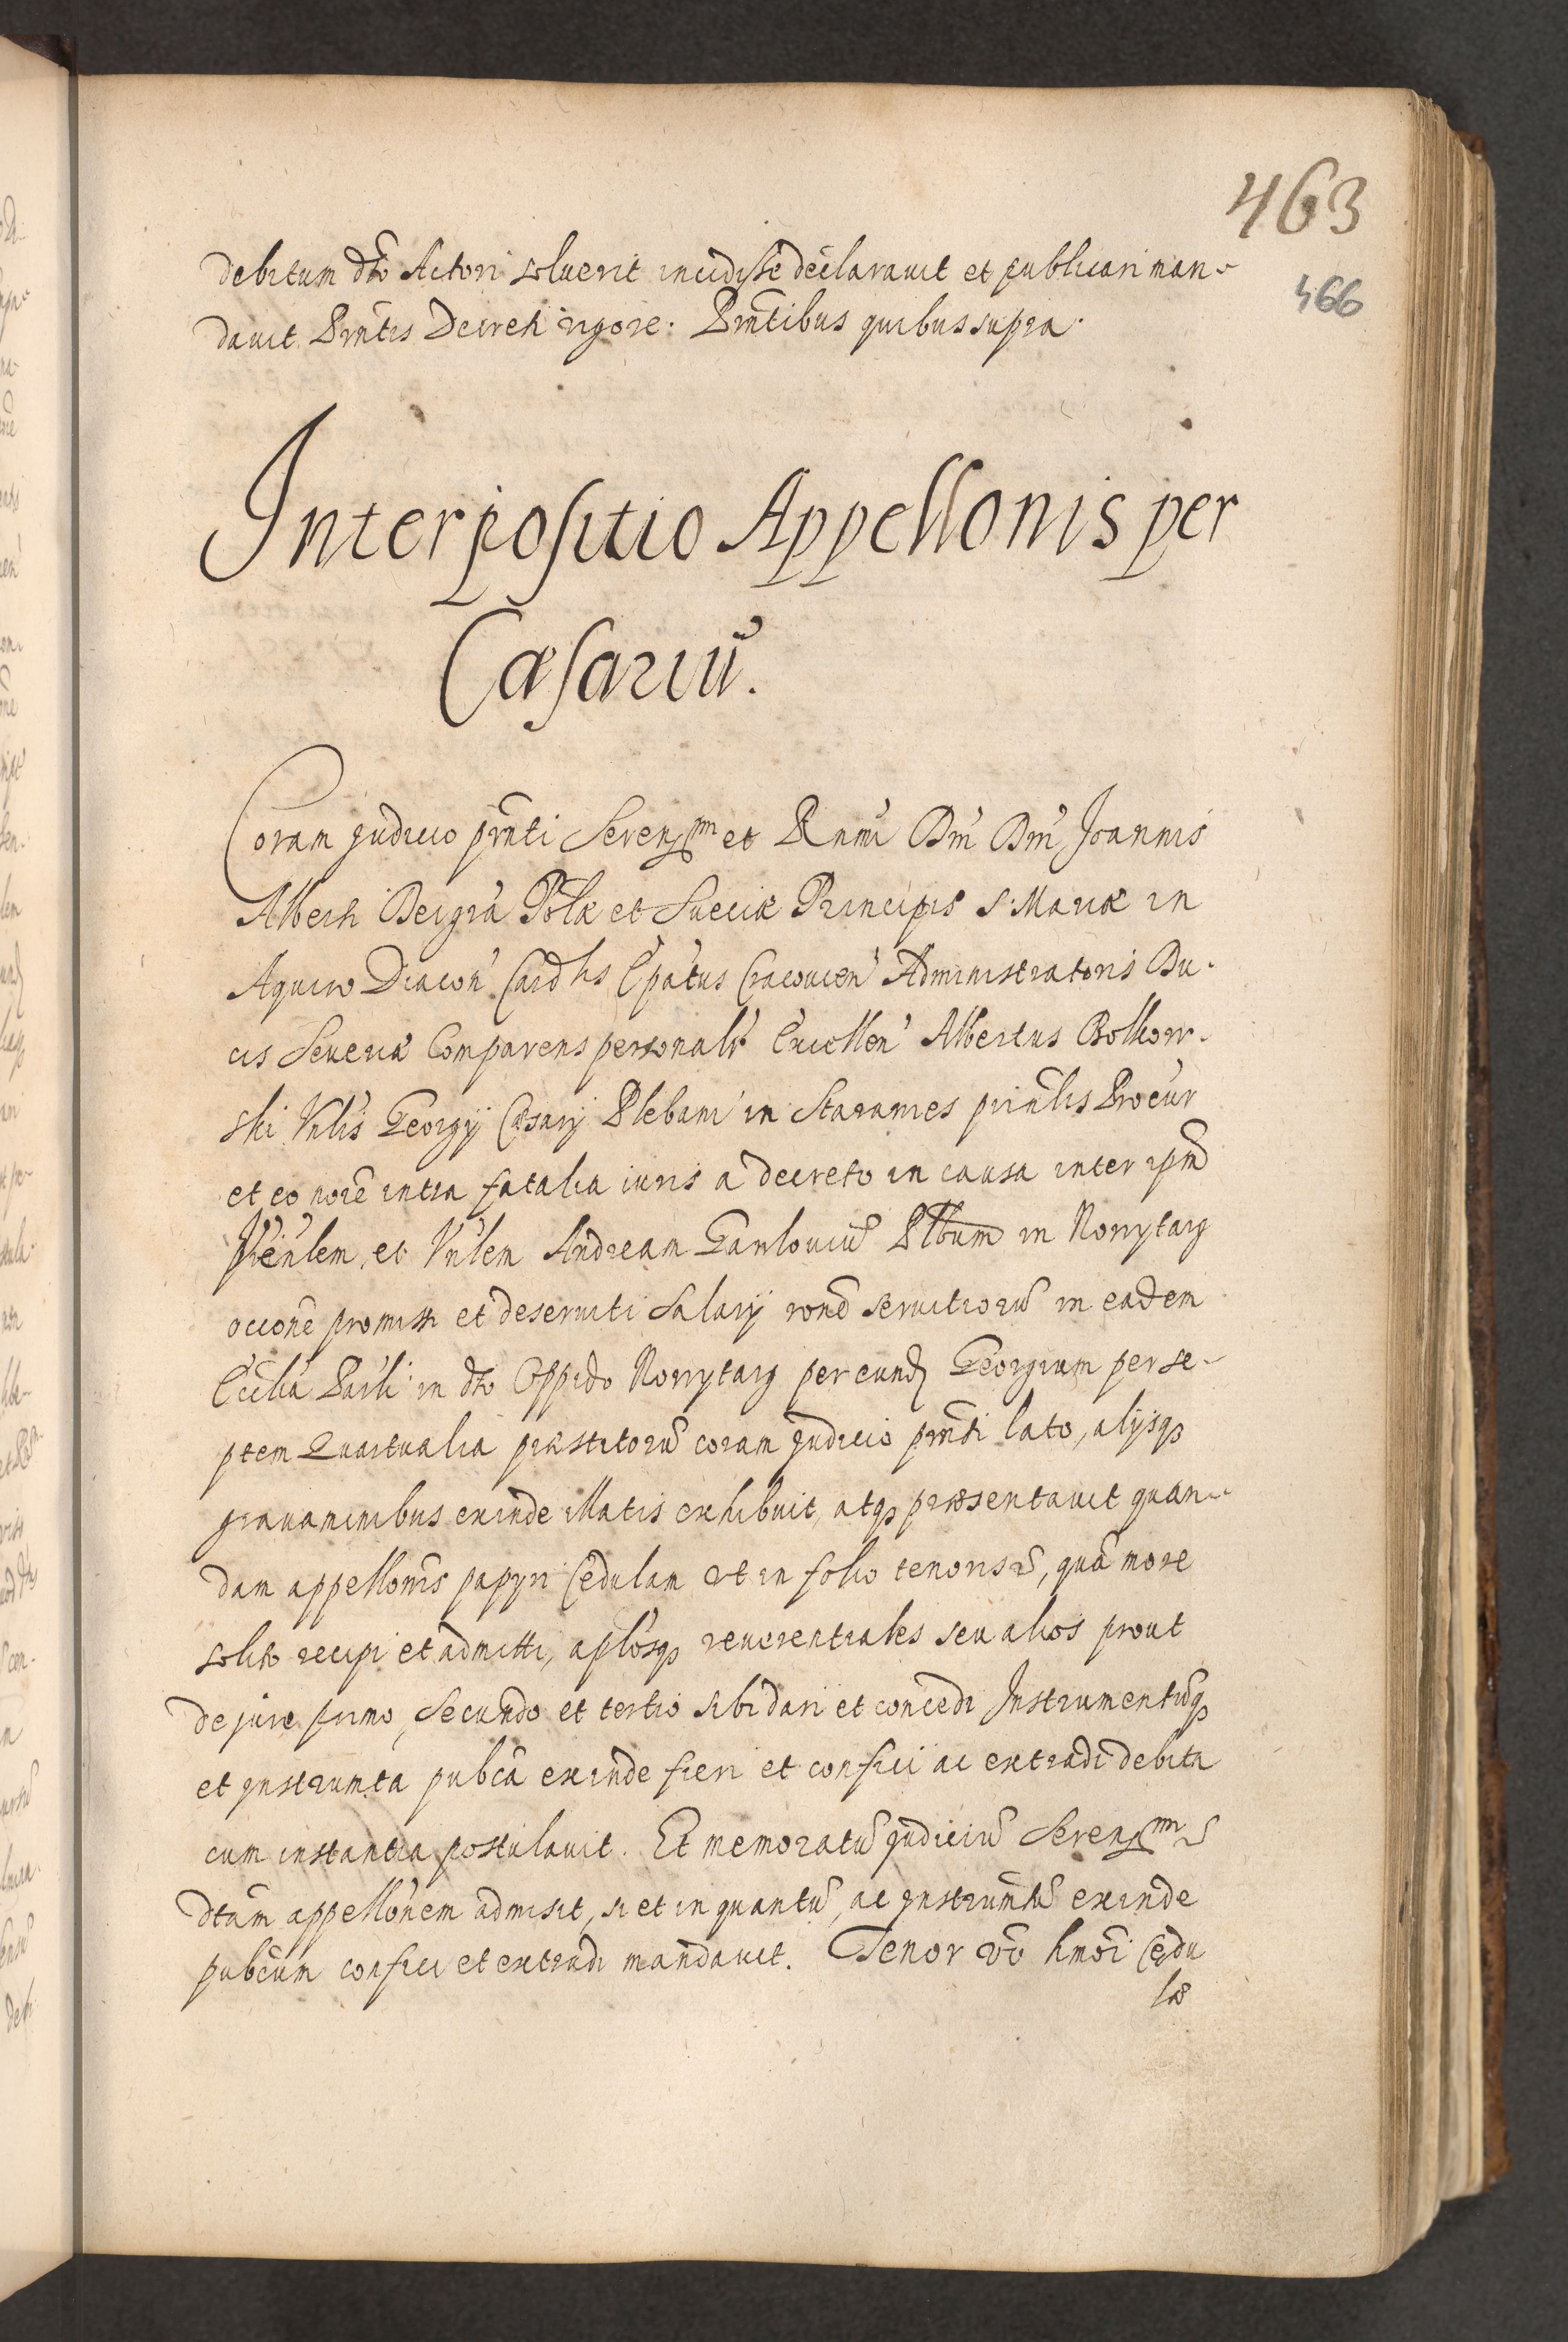 463
466
debitum dto Actori soluerit incidisse declarauit et publicari man-
dauit Prntis Decreti rigore. Prntibus quibus supra.
Interpositio Appellonis per
Cæsariũ.
Coram judicio prnti Serenssmi et Rnmi Dni Dni Joannis
Alberti Dei gra Polæ et Sueciæ Principis S. Mariæ in
Aquiro Diacon Cardlis Epatus Cracouien Administratoris Du-
cis Seueriæ Comparens personalr Excellen Albertus Bolkow-
ski Vnlis Georgij Cæsarij Plebani in Starawies prinlis Procur
et eo noie intra fatalia iuris a decreto in causa inter ipm
Prinlem, et Vnlem Andream Gawlouiũ Plbanum in Nowytarg
occone promissi et deseruiti salarij rone seruitiorũ in eadem
Ecclia Parli in dto Oppido Nowytarg per eund Georgium per se-
ptem Quartualia præstitorũ coram judicio prnti lato, alijsq
grauaminibus exinde illatis exhibuit, atq præsentauit quan-
dam appellonis papyri Cedulam vt in folio tenoris r, quã more
solito recipi et admitti, aplosq reuerentiales seu alios prout
de jure primo, Secundo et tertio sibi dari et concedi Instrumentũq
et jnstrumta pubca exinde fieri et confici ac extradi debita
cum instantia postulauit. Et memoratũ judiciũ Serenssmi
dtam appellonem admisit, si et in quantũ, ac jnstrumtũ exinde
pubcum confici et extradi mandauit. Tenor vo hmoi Cedu
læ